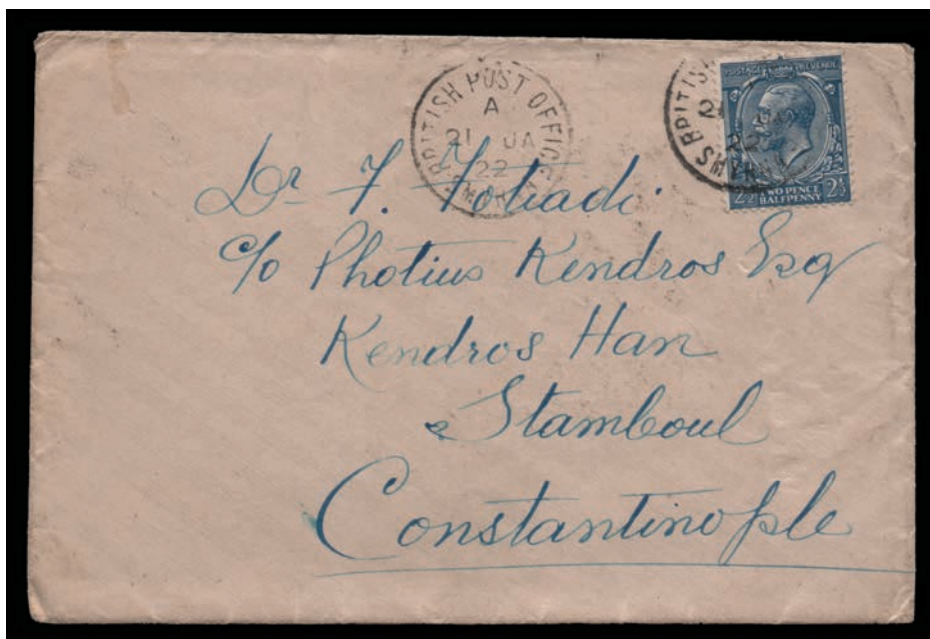 BRITISH POST OFFICE SMYRNA
A
21 JA
22
BRITISH
21
22
SMYRNA
POSTAGE REVENUE
TWO PENCE
2½ HALFPENNY 2½
Dr. F. Fotiadi
c/o Photius Kendros Esq
Kendros Han
Stamboul
Constantinople